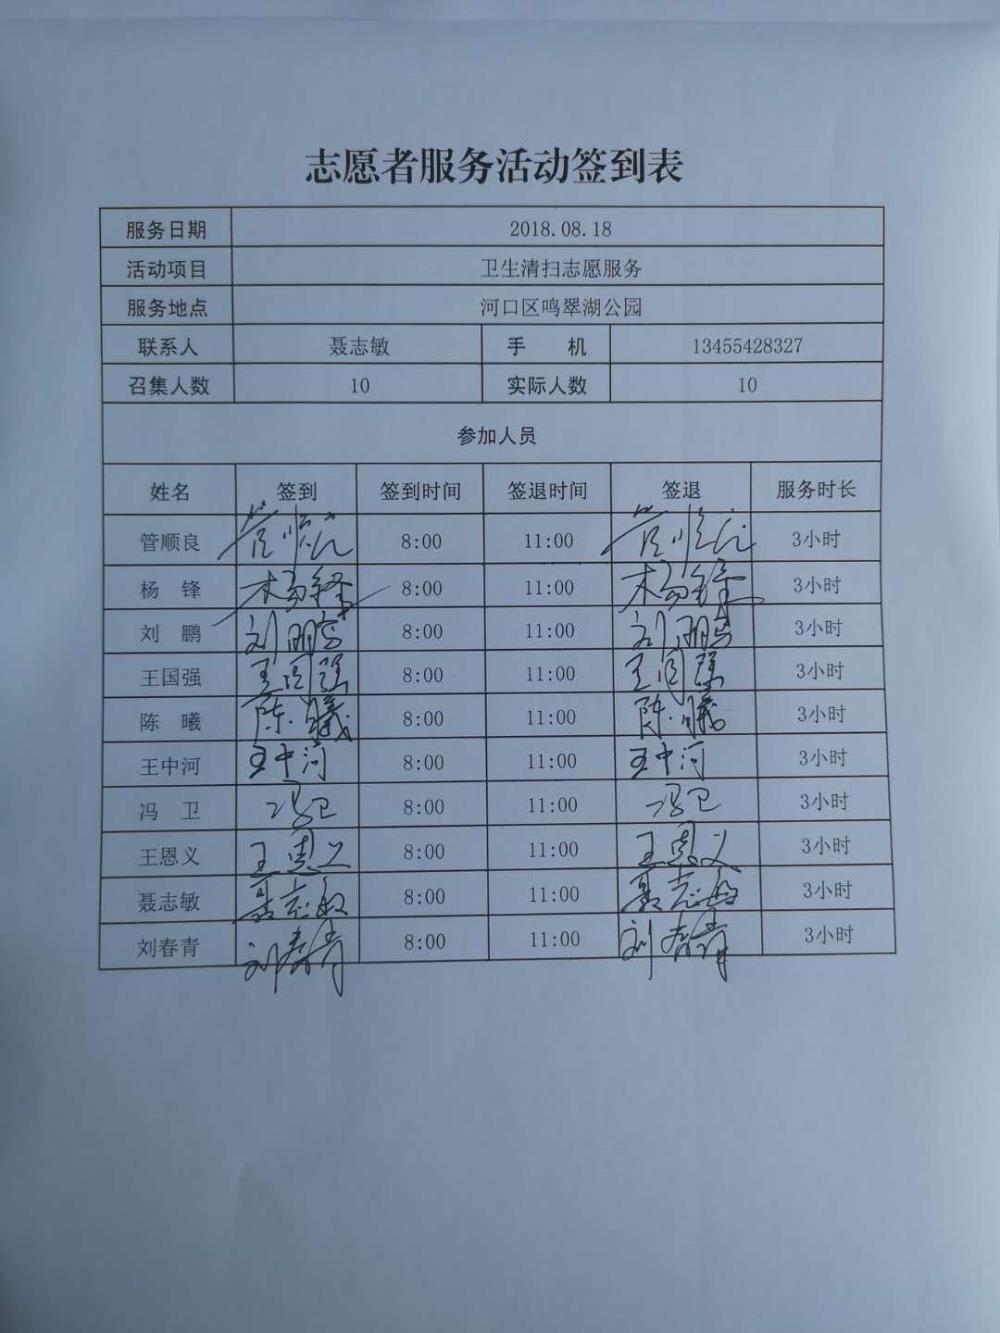 志愿者服务活动签到表
服务日期 2018.08.18
活动项目 卫生清扫志愿服务
服务地点 河口区鸣翠湖公园
联系人 聂志敏 手 机 13455428327
召集人数 10 实际人数 10
参加人员
姓名 签到 签到时间 签退时间 签退 服务时长
管顺良 管顺良 8:00 11:00 管顺良 3小时
杨 锋 杨锋 8:00 11:00 杨锋 3小时
刘 鹏 刘鹏 8:00 11:00 刘鹏 3小时
王国强 王国强 8:00 11:00 王国强 3小时
陈 曦 陈曦 8:00 11:00 陈曦 3小时
王中河 王中河 8:00 11:00 王中河 3小时
冯 卫 冯卫 8:00 11:00 冯卫 3小时
王恩义 王恩义 8:00 11:00 王恩义 3小时
聂志敏 聂志敏 8:00 11:00 聂志敏 3小时
刘春青 刘春青 8:00 11:00 刘春青 3小时